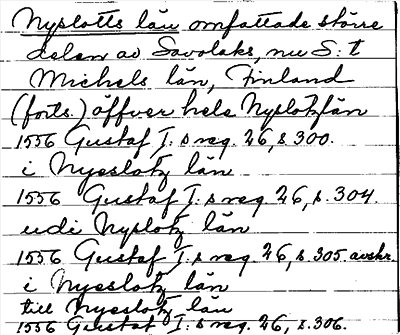 Nyslotts län omfattade större
delen av Savolaks, nu S:t
Michels län, Finland
(forts.) öffver hele Nyslotzlän
1556 Gustaf I:s reg. 26, s. 300.
i Nyeslotz län
1556 Gustaf I:s reg. 26, s. 304.
udi Nyslotz län
1556 Gustaf I:s reg. 26, s. 305. avskr.
i Nyeslotz län
till Nyeslotz län
1556 Gustaf I:s reg. 26, s. 306.